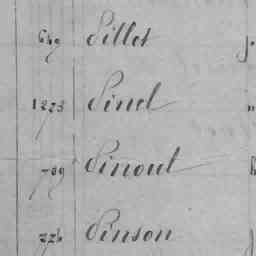 649 Pillet
1273 Pinel
709 Pinoul
226 Pinson